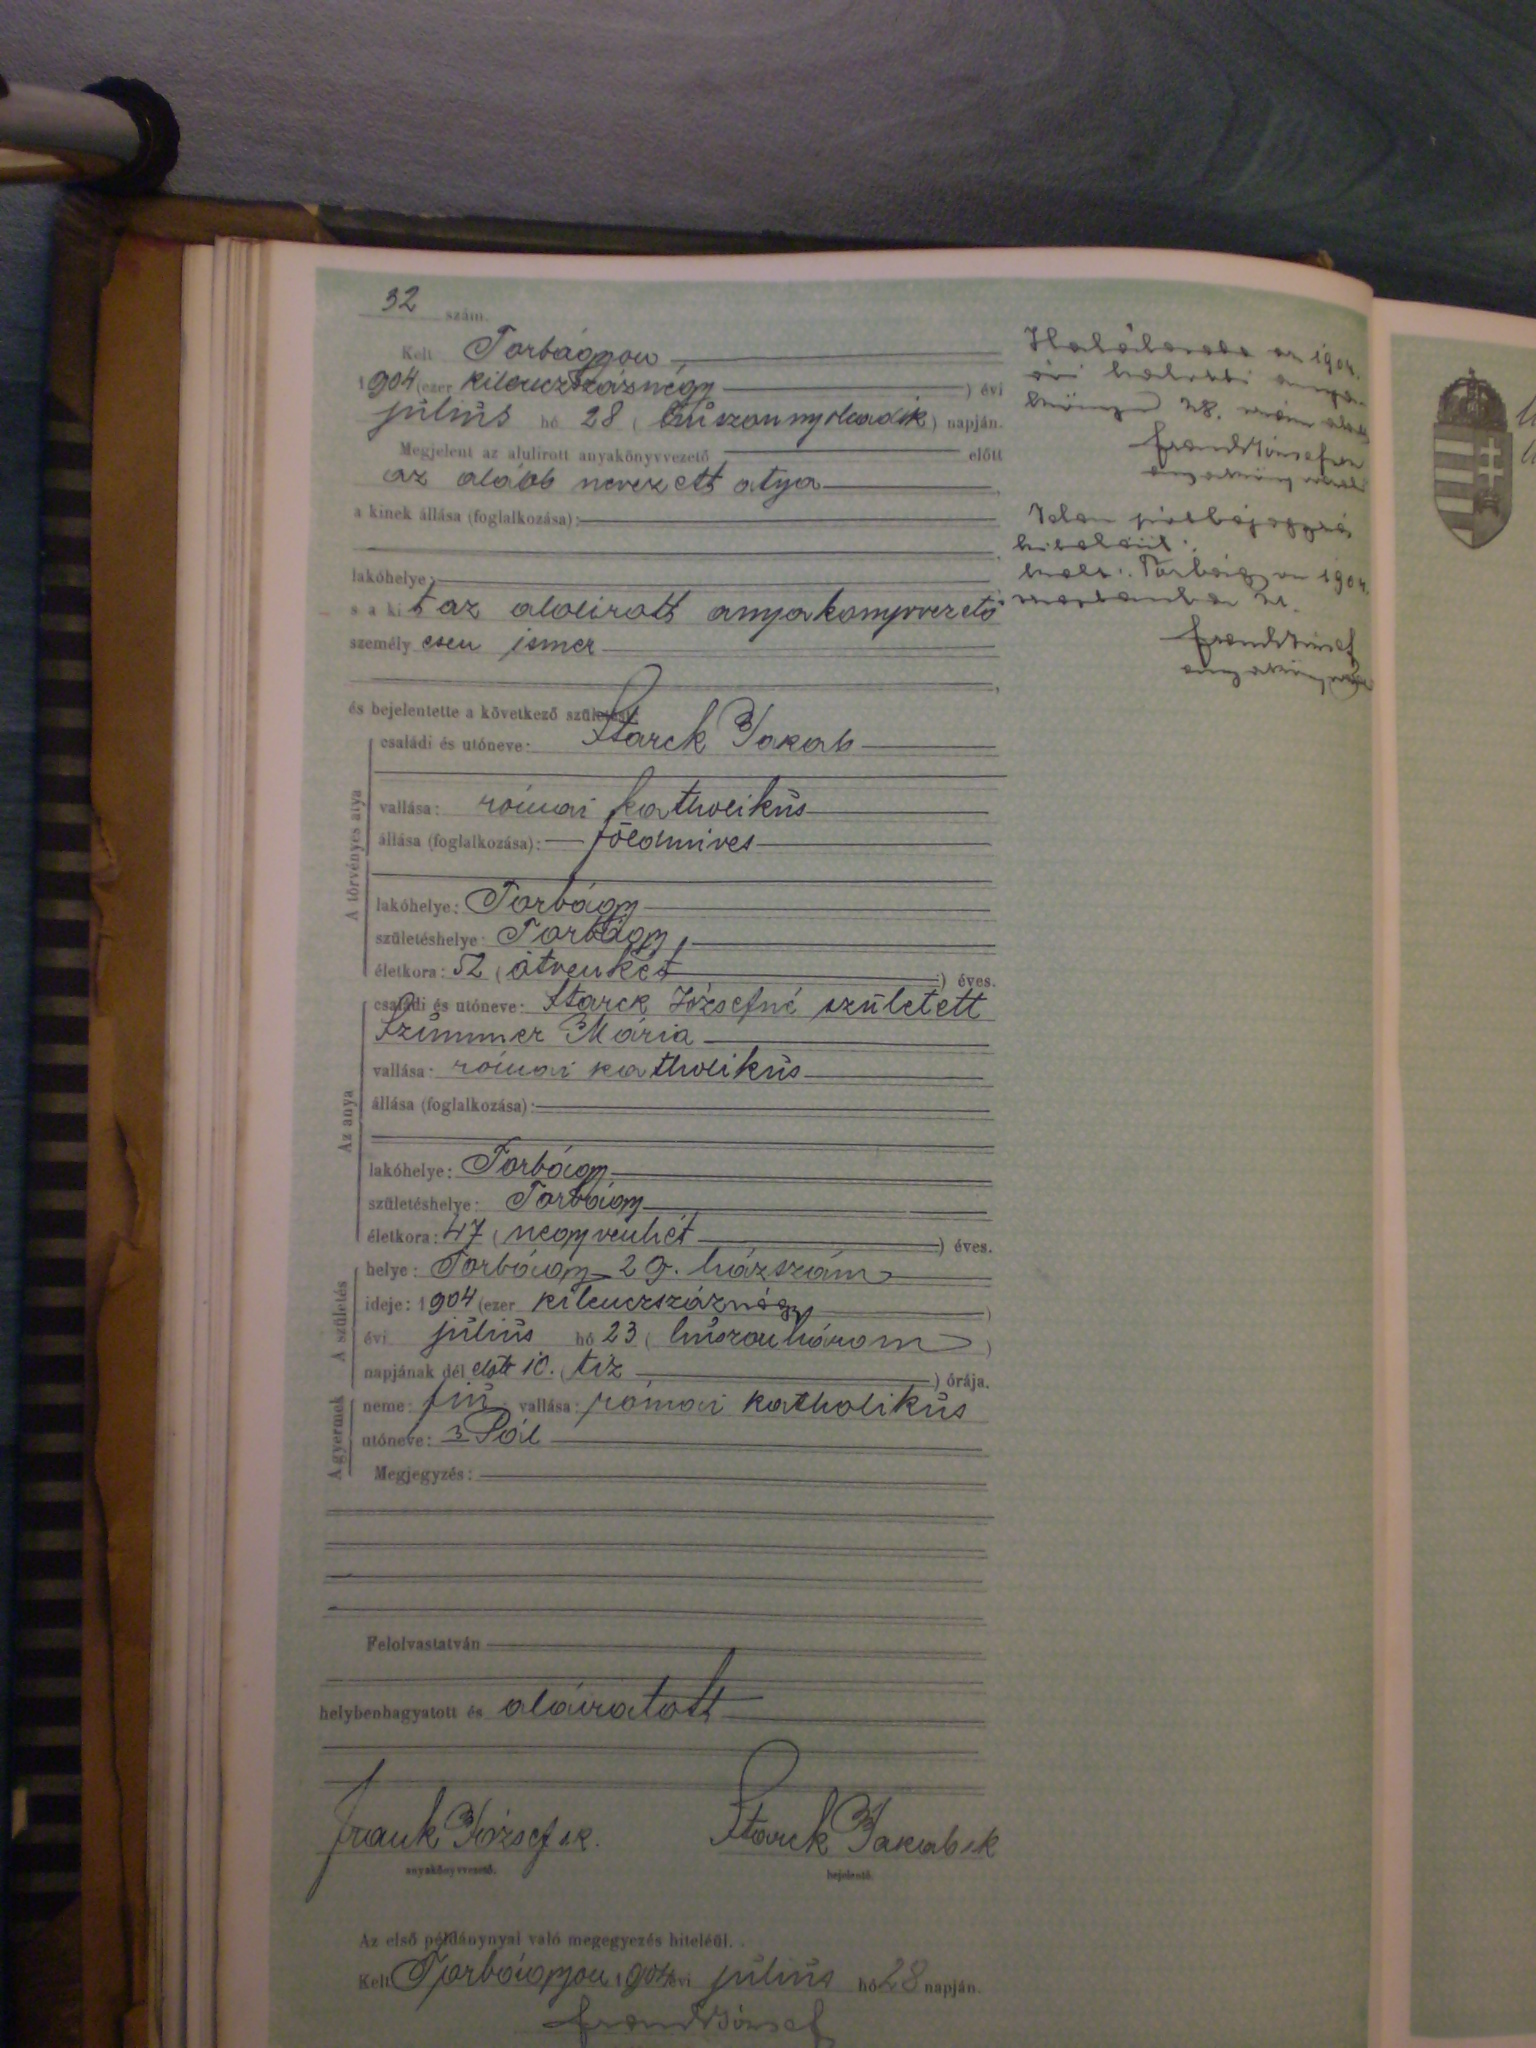 32 szám.
Kelt Torbágyon
1904 (ezer kilenczszáznégy ) évi
július hó 28 ( huszonnyolcadik ) napján.
Megjelent az alulirott anyakönyvvezető előtt
az alább nevezett atya
a kinek állása (foglalkozása):
lakóhelye:
s a kit az alolirott anyakönyvvezető
személyesen ismer
és bejelentette a következő születést:
A törvényes atya
családi és utóneve: Starck Jakab
vallása: római katholikus
állása (foglalkozása): földmives
lakóhelye: Torbágy
születéshelye: Torbágy
életkora: 52 ( ötvenkét ) éves.
Az anya
családi és utóneve: Starck Józsefné született
Szimmer Mária
vallása: római katholikus
állása (foglalkozása):
lakóhelye: Torbágy
születéshelye: Torbágy
életkora: 47 ( negyvenhét ) éves.
A születés
helye: Torbágy 29. házszám
ideje: 1904 (ezer kilenczszáznégy )
évi július hó 23 ( huszonhárom )
napjának dél előtt 10. ( tiz ) órája.
A gyermek
neme: fiú vallása: római katholikus
utóneve: Pál
Megjegyzés:
Felolvastatván
helybenhagyatott és aláiratott
Frank József sk. Starck Jakab sk
anyakönyvvezető. bejelentő.
Az első példánynyal való megegyezés hiteléül.
Kelt Torbágyon 1904 évi július hó 28 napján.
Frank József
1904.
évi halotti
28. szám alatt
Frank József
anyakönyvvezető
Jelen
Torbágyon 1904.
21.
Frank József
anyakönyvvezető